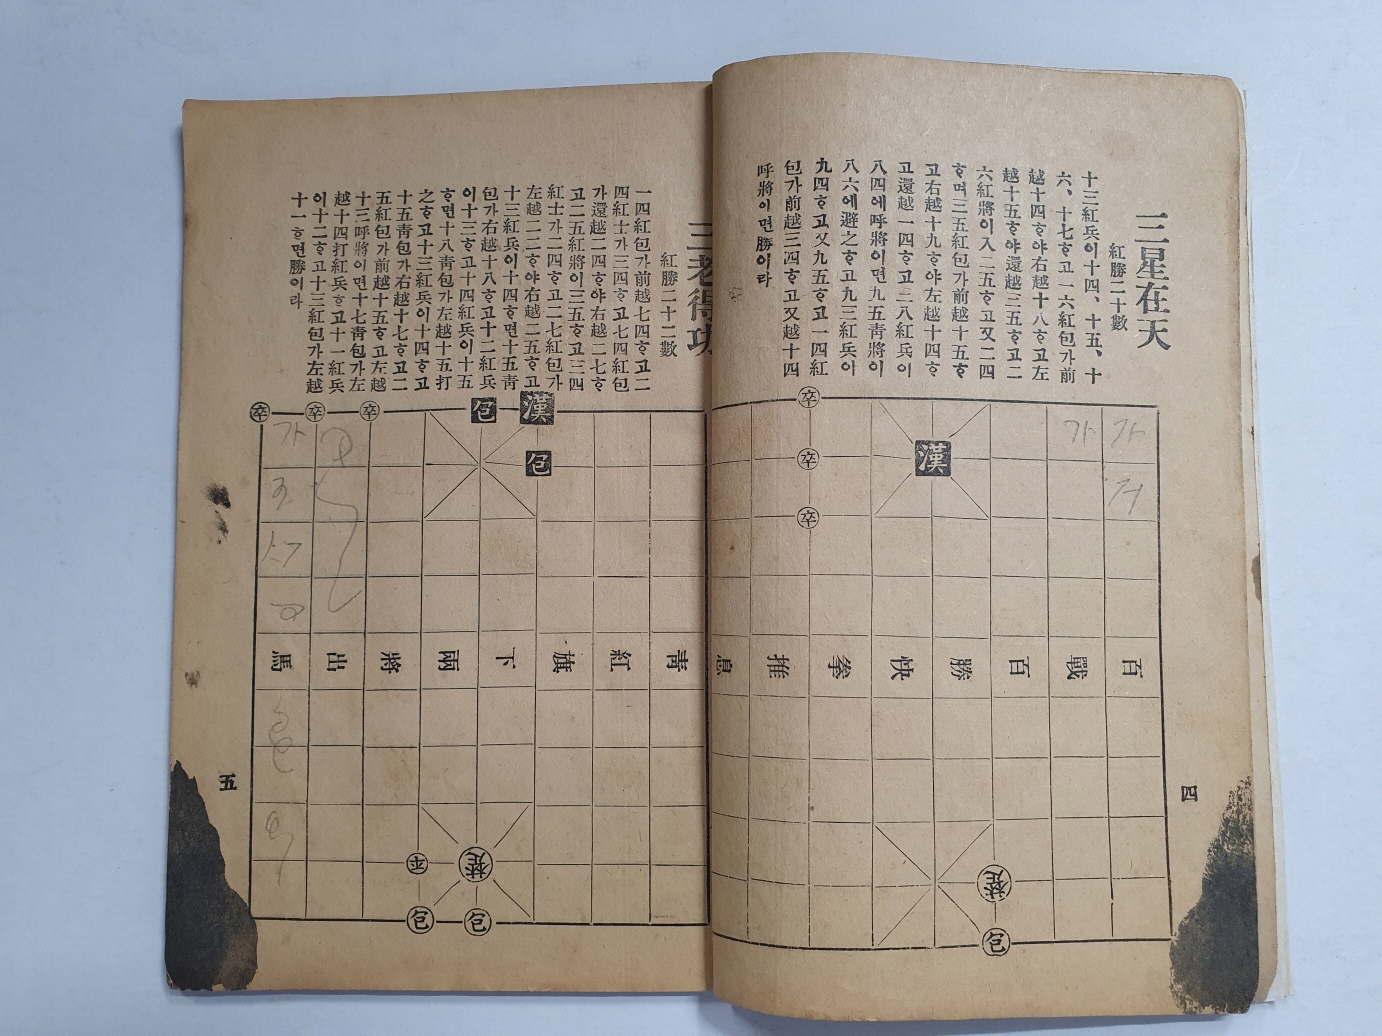 三星在天
紅勝二十數
十三紅兵이十四、十五、十
六、十七ᄒᆞ고一六紅包가前
越十四ᄒᆞ야右越十八ᄒᆞ고左
越十五ᄒᆞ야還越三五ᄒᆞ고二
六紅將이入二五ᄒᆞ고又二四
ᄒᆞ며三五紅包가前越十五ᄒᆞ
고右越十九ᄒᆞ야左越十四ᄒᆞ
고還越一四ᄒᆞ고二八紅兵이
八四에呼將이면九五靑將이
八六에避之ᄒᆞ고九三紅兵아
九四ᄒᆞ고又九五ᄒᆞ고一四紅
包가前越三四ᄒᆞ고又越十四
呼將이면勝이라
卒
卒
卒
漢
百
戰
百
勝
快
拳
推
息
楚
包
四
三老得功
紅勝二十二數
一四紅包가前越七四ᄒᆞ고二
四紅士가三四ᄒᆞ고七四紅包
가還越二四ᄒᆞ야右越二七ᄒᆞ
고二五紅將이三五ᄒᆞ고三四
紅士가二四ᄒᆞ고二七紅包가
左越二二ᄒᆞ야右越二五ᄒᆞ고
十三紅兵이十四ᄒᆞ면十五靑
包가右越十八ᄒᆞ고十二紅兵
이十三ᄒᆞ고十四紅兵이十五
ᄒᆞ면十八靑包가左越十五打
之ᄒᆞ고十三紅兵이十四ᄒᆞ고
十五靑包가右越十七ᄒᆞ고二
五紅包가前越十五ᄒᆞ고左越
十三呼將이면十七靑包가左
越十四打紅兵ᄒᆞ고十一紅兵
이十二ᄒᆞ고十三紅包가左越
十一ᄒᆞ면勝이라
卒
卒
卒
包
漢
包
靑
紅
旗
下
兩
將
出
馬
楚
包
包
五